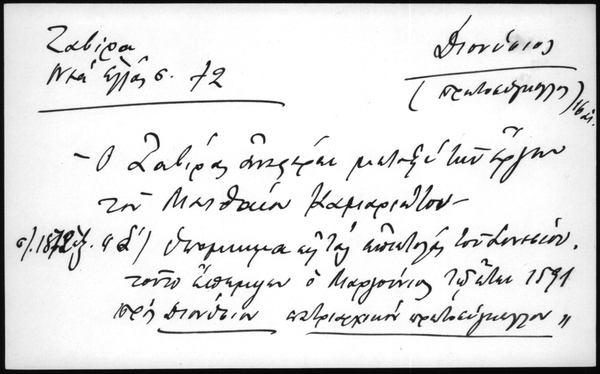 Ζαβίρα
Νέα Ἑλλάς σ. 72
Διονύσιος
(πρωτοσύγκελλος) 16 αἰ.
– Ὁ Ζαβίρας ἀναφέρει μεταξύ τῶν ἔργων
τοῦ Ματθαίου Καμαριώτου –
Ὑπόμνημα εἰς τάς ἐπιστολάς τοῦ Συνεσίου.
τοῦτο ἔπεμψεν ὁ Μαργούνιος τῷ ἔτει 1591
πρός Διονύσιον πατριαρχικόν πρωτοσύγκελλον „